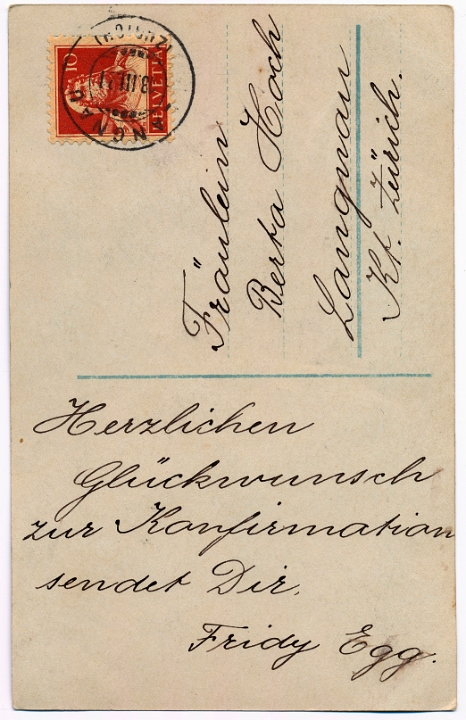 10
HELVETIA
Fräulein
Berta Hoch
Langnau
Kt. Zürich.
Herzlichen
Glückwunsch
zur Konfirmation
sendet Dir.
Fridy Egg.